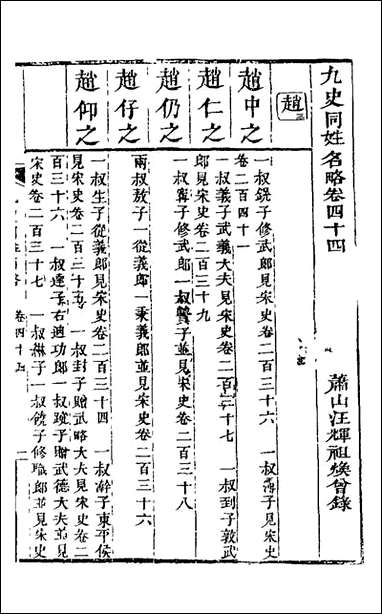 九史同姓名略卷四十四
蕭山汪輝祖煥曾錄
趙三
趙中之
一叔銑子修武郎見宋史卷二百三十六 一叔漙子見宋史
卷二百四十一
趙仁之
一叔義子武義大夫見宋史卷二百三十七 一叔到子敦武
郎見宋史卷二百三十九
趙仍之
一叔籌子修武郎一叔贊子並見宋史卷二百三十八
趙仔之
兩叔敖子一從義郎一秉義郎並見宋史卷二百三十六
趙仰之
一叔生子從義郎見宋史卷二百三十四 一叔幹子東平侯
見宋史卷二百三十五 一叔封子贈武略大夫見宋史卷二
百三十六 一叔達子右迪功郎一叔琁子贈武德大夫並見
宋史卷二百三十七 一叔琳子一叔銑子修職郎並見宋史
卷四十四
一